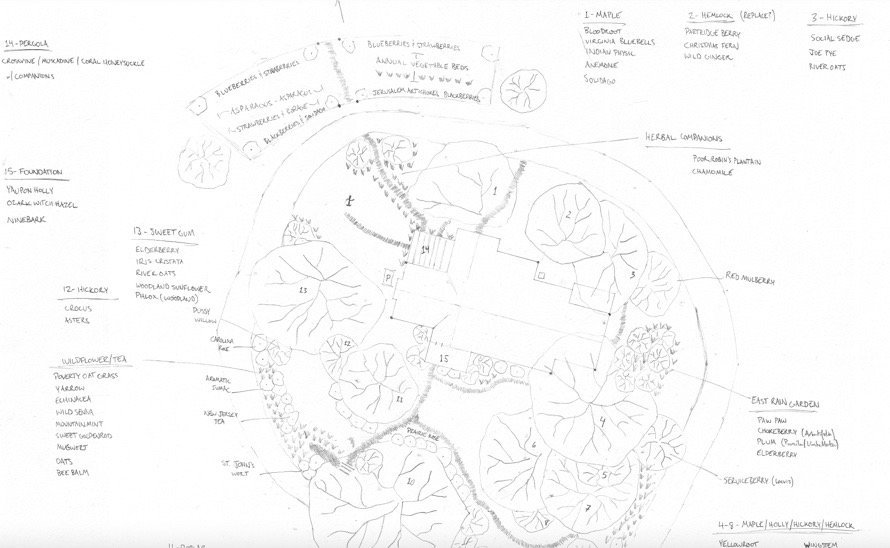 1 - MAPLE
BLOODROOT
VIRGINIA BLUEBELLS
INDIAN PHYSIC
ANEMONE
SOLIDAGO
2 - HEMLOCK (REPLACE?)
PARTRIDGE BERRY
CHRISTMAS FERN
WILD GINGER
3 - HICKORY
SOCIAL SEDGE
JOE PYE
RIVER OATS
14 - PERGOLA
CROSSVINE / MUSCADINE / CORAL HONEYSUCKLE
w/ COMPANIONS
BLUEBERRIES & STRAWBERRIES
ANNUAL VEGETABLE BEDS
JERUSALEM ARTICHOKES BLACKBERRIES
BLUEBERRIES & STRAWBERRIES
ASPARAGUS - ASPARAGUS
STRAWBERRIES & BORAGE
BLACKBERRIES &
HERBAL COMPANIONS
POOR ROBIN'S PLANTAIN
CHAMOMILE
15 - FOUNDATION
YAUPON HOLLY
OZARK WITCH HAZEL
NINEBARK
13 - SWEET GUM
ELDERBERRY
IRIS CRISTATA
RIVER OATS
WOODLAND SUNFLOWER
PHLOX (WOODLAND)
12 - HICKORY
CROCUS
ASTERS
PUSSY
WILLOW
CAROLINA
ROSE
AROMATIC
SUMAC
NEW JERSEY
TEA
ST. JOHN'S
WORT
WILDFLOWER/TEA
POVERTY OAT GRASS
YARROW
ECHINACEA
WILD SENNA
MOUNTAIN MINT
SWEET GOLDENROD
MUGWORT
OATS
BEE BALM
1
1
2
3
14
P
13
12
11
15
PRAIRIE ROSE
10
4
6
5
7
8
RED MULBERRY
EAST RAIN GARDEN
PAW PAW
CHOKEBERRY
PLUM
ELDERBERRY
SERVICEBERRY (Laevis)
4-8 - MAPLE/HOLLY/HICKORY/HEMLOCK
YELLOWROOT
WINGSTEM